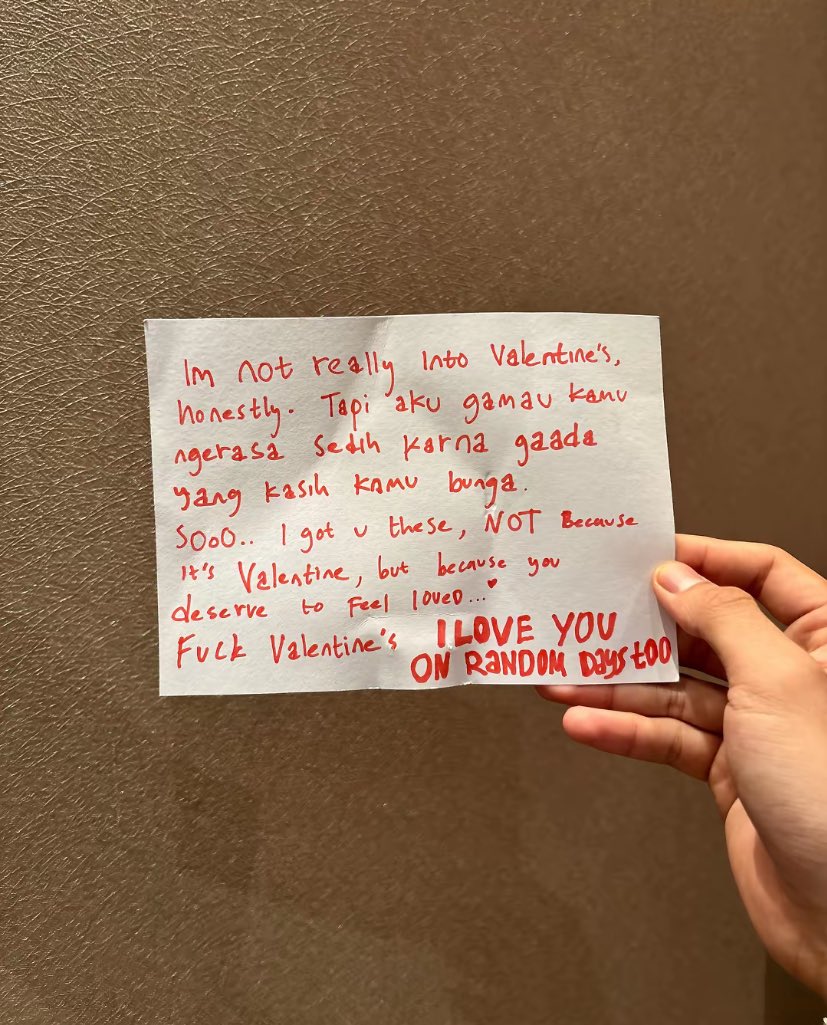 Im not really Into Valentine's,
honestly. Tapi aku gamau kamu
ngerasa sedih karna gaada
yang kasih kamu bunga.
SOoO.. I got u these, NOT Because
It's Valentine, but because you
deserve to Feel loveD...♥
Fuck Valentine's I LOVE YOU
ON RANDOM Days tOO